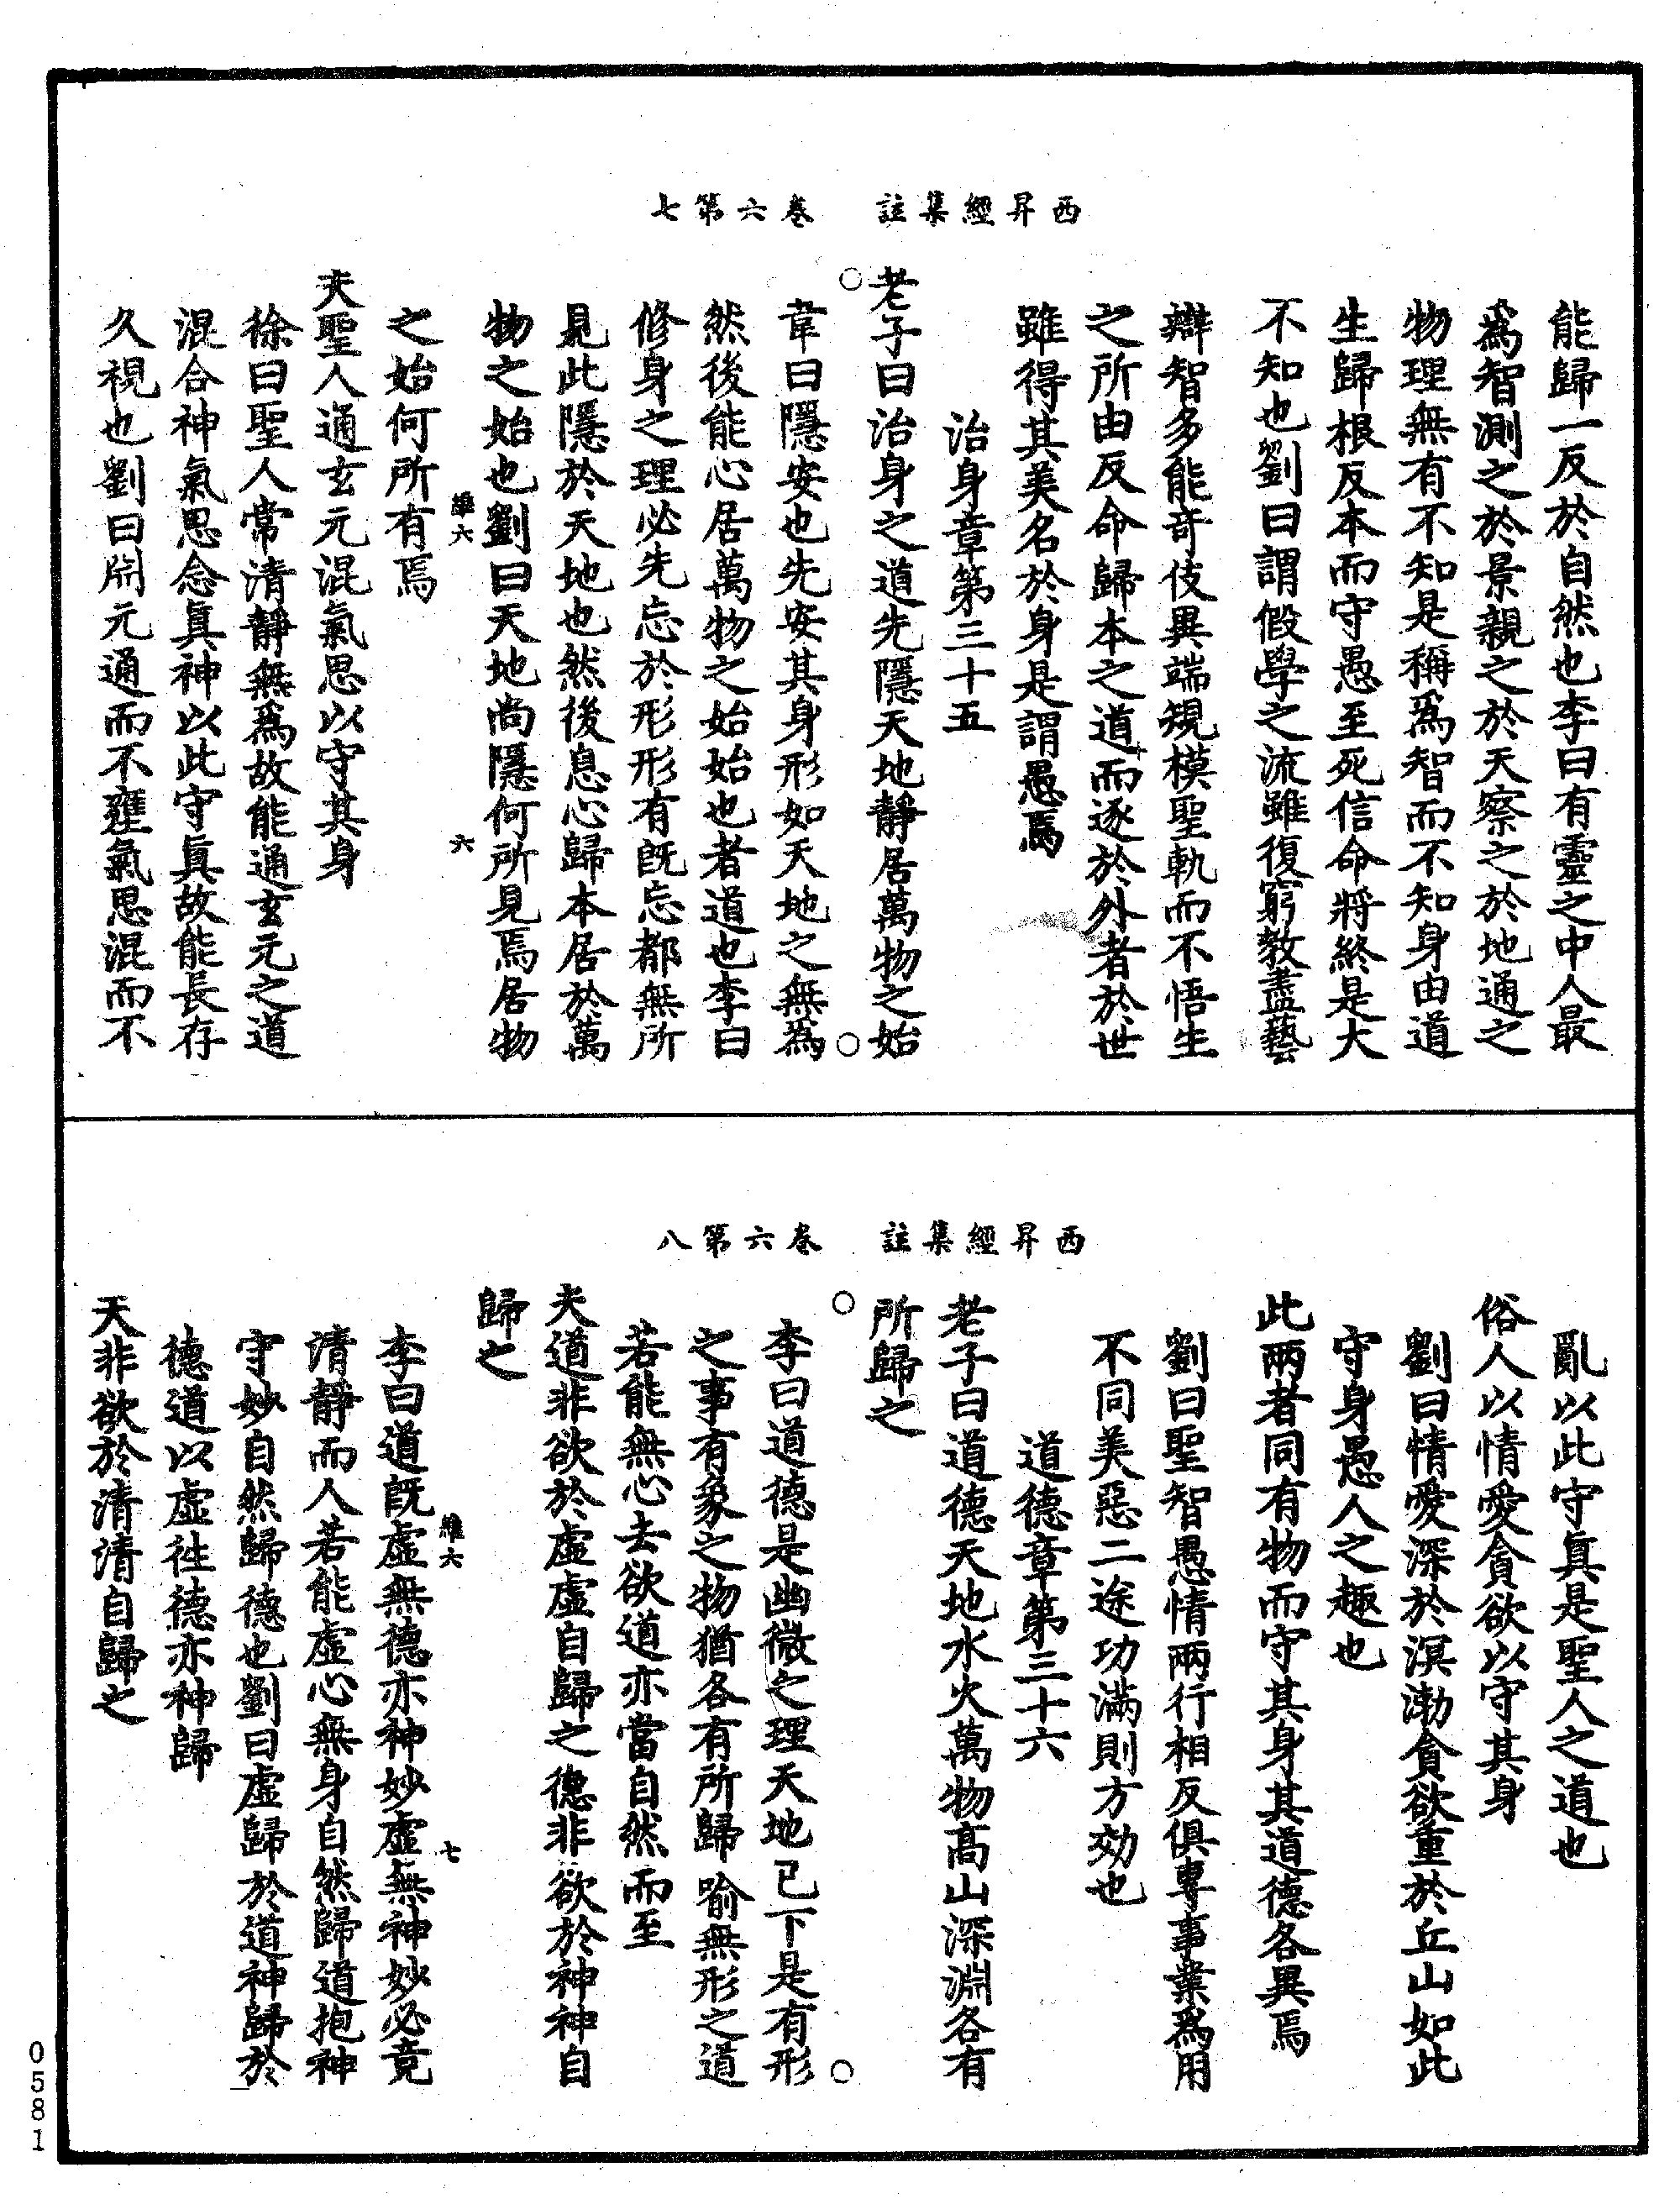 西昇經集註　卷六第七
能歸一反於自然也李曰有靈之中人最
爲智測之於景親之於天察之於地通之
物理無有不知是稱爲智而不知身由道
生歸根反本而守愚至死信命將終是大
不知也劉曰謂假學之流雖復窮教盡藝
辯智多能奇伎異端規模聖軌而不悟生
之所由反命歸本之道而逐於外者於世
雖得其美名於身是謂愚焉
治身章第三十五
老子曰治身之道先隱天地靜居萬物之始
韋曰隱安也先安其身形如天地之無為
然後能心居萬物之始始也者道也李曰
修身之理必先忘於形形有旣忘都無所
見此隱於天地也然後息心歸本居於萬
物之始也劉曰天地尚隱何所見焉居物
維六　六
之始何所有焉
夫聖人通玄元混氣思以守其身
徐曰聖人常清靜無爲故能通玄元之道
混合神氣思念眞神以此守眞故能長存
久視也劉曰開元通而不壅氣思混而不
西昇經集註　卷六第八
亂以此守眞是聖人之道也
俗人以情愛貪欲以守其身
劉曰情愛深於溟渤貪欲重於丘山如此
守身愚人之趣也
此兩者同有物而守其身其道德各異焉
劉曰聖智愚情兩行相反俱專事業爲用
不同美惡二途功滿則方効也
道德章第三十六
老子曰道德天地水火萬物高山深淵各有
所歸之
李曰道德是幽微之理天地已下是有形
之事有象之物猶各有所歸喻無形之道
若能無心去欲道亦當自然而至
夫道非欲於虛虛自歸之德非欲於神神自
歸之
維六　七
李曰道旣虛無德亦神妙虛無神妙必竟
清靜而人若能虛心無身自然歸道抱神
守妙自然歸德也劉曰虛歸於道神歸於
德道以虛往德亦神歸
天非欲於清清自歸之
0581